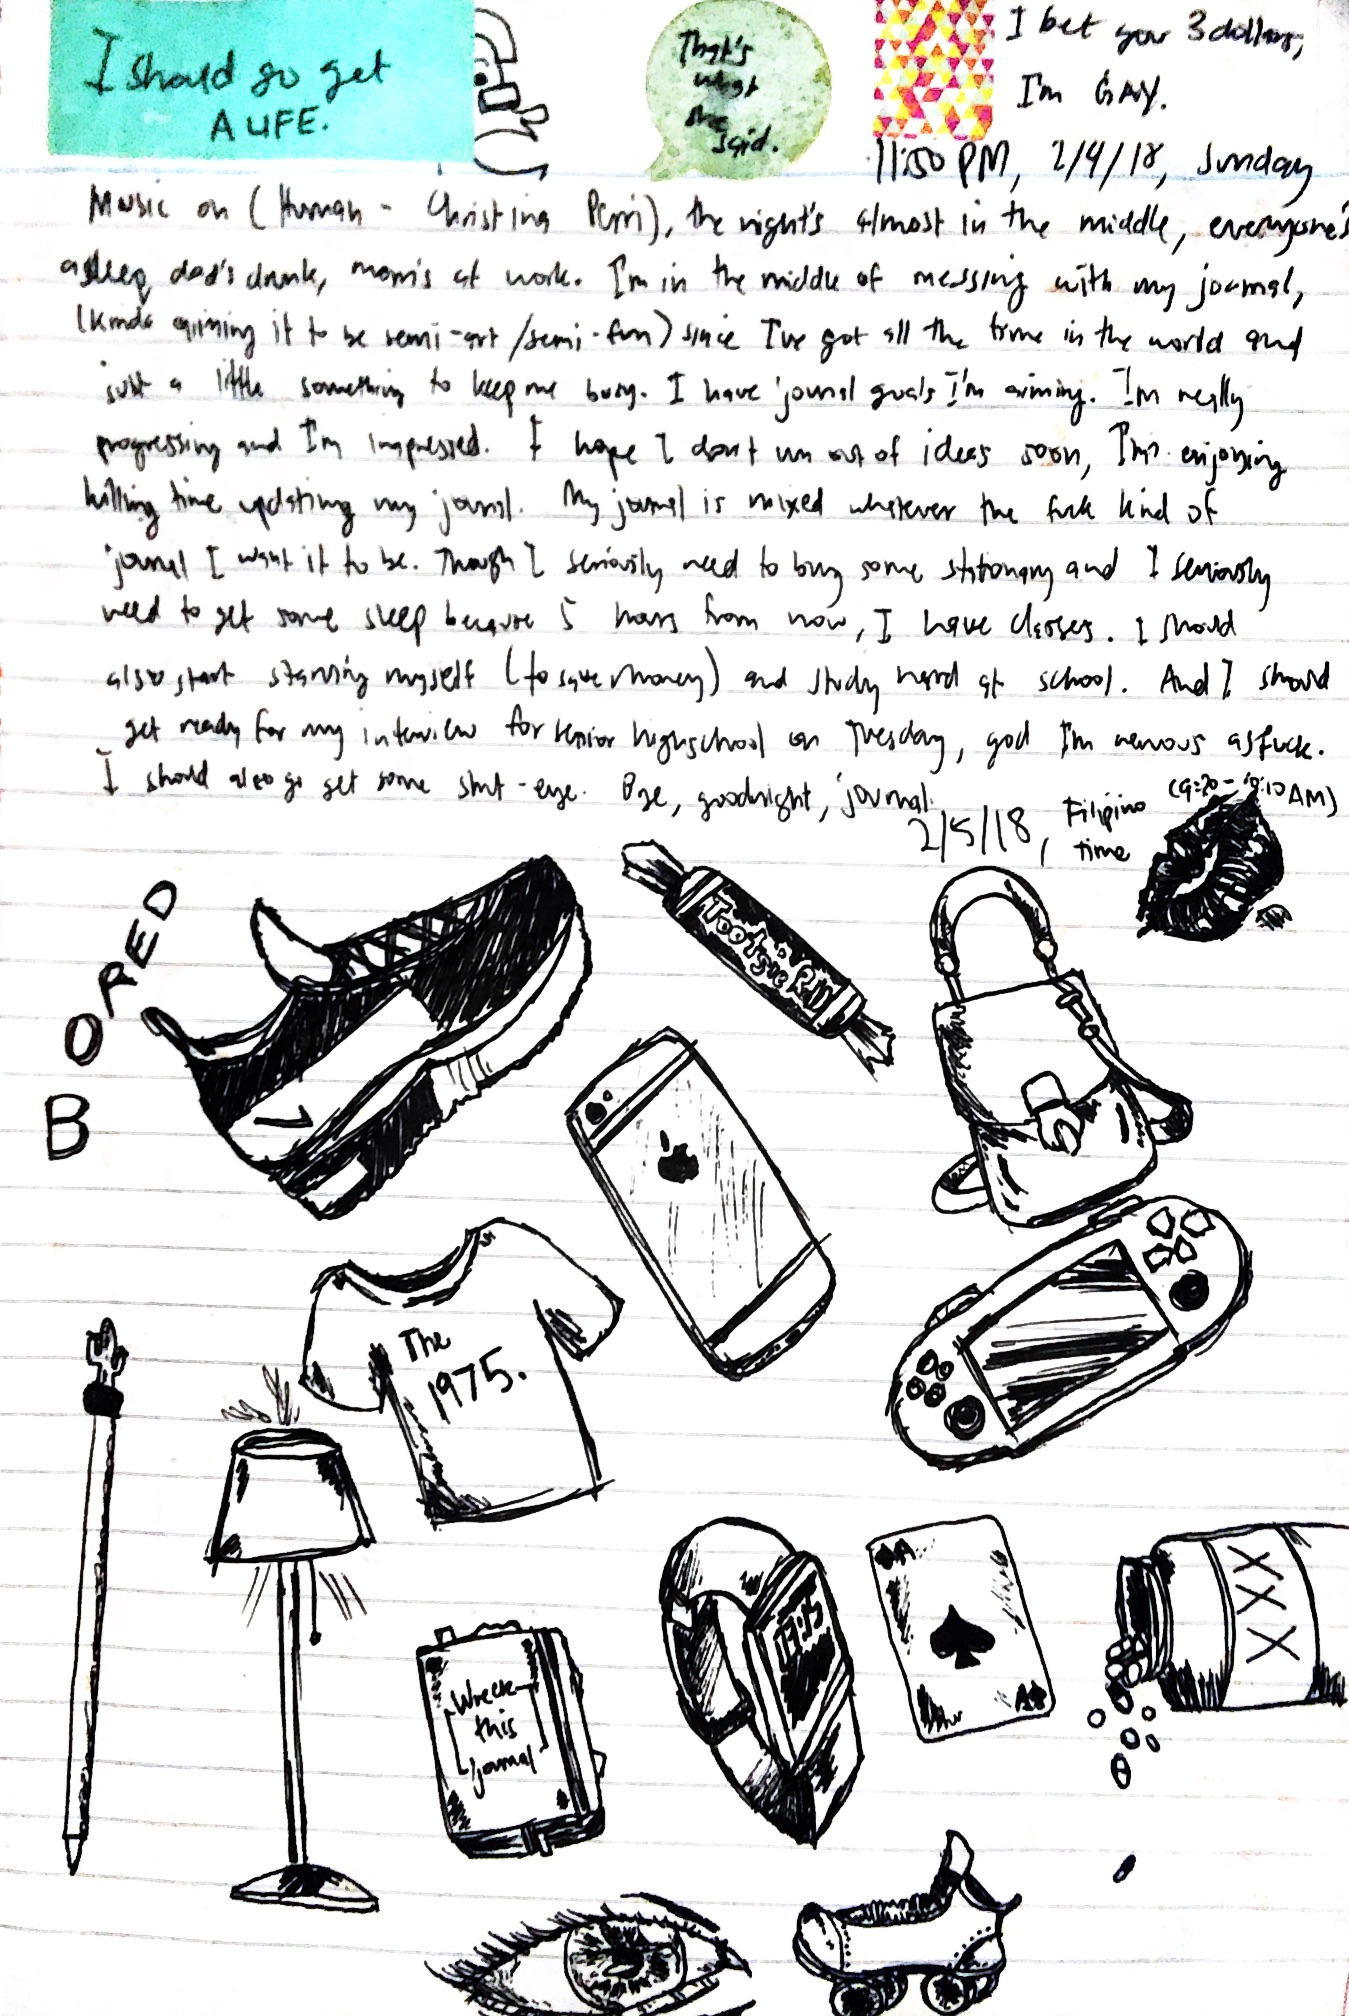 I should go get
A LIFE.
That's
what
she
said.
I bet you 3 dollars,
I'm GAY.
11:50 PM, 2/4/18, Sunday
Music on (Human - Christina Perri), the night's almost in the middle, everyone's
asleep, dad's drunk, mom's at work. I'm in the middle of messing with my journal,
(kinda aiming it to be semi-art/semi-fun) since I've got all the time in the world and
just a little something to keep me busy. I have journal goals I'm aiming. I'm really
progressing and I'm impressed. I hope I don't run out of ideas soon, I'm enjoying
killing time updating my journal. My journal is mixed whatever the fuck kind of
journal I want it to be. Though I seriously need to buy some stationary and I seriously
need to get some sleep because 5 hours from now, I have classes. I should
also start starving myself (to save money) and study hard at school. And I should
get ready for my interview for senior highschool on Tuesday, god I'm nervous as fuck.
I should also go get some shut-eye. Bye, goodnight, journal.
2/5/18, Filipino
time
BORED
Tootsie Roll
The
1975.
Wreck
this
journal
A
A
XXX